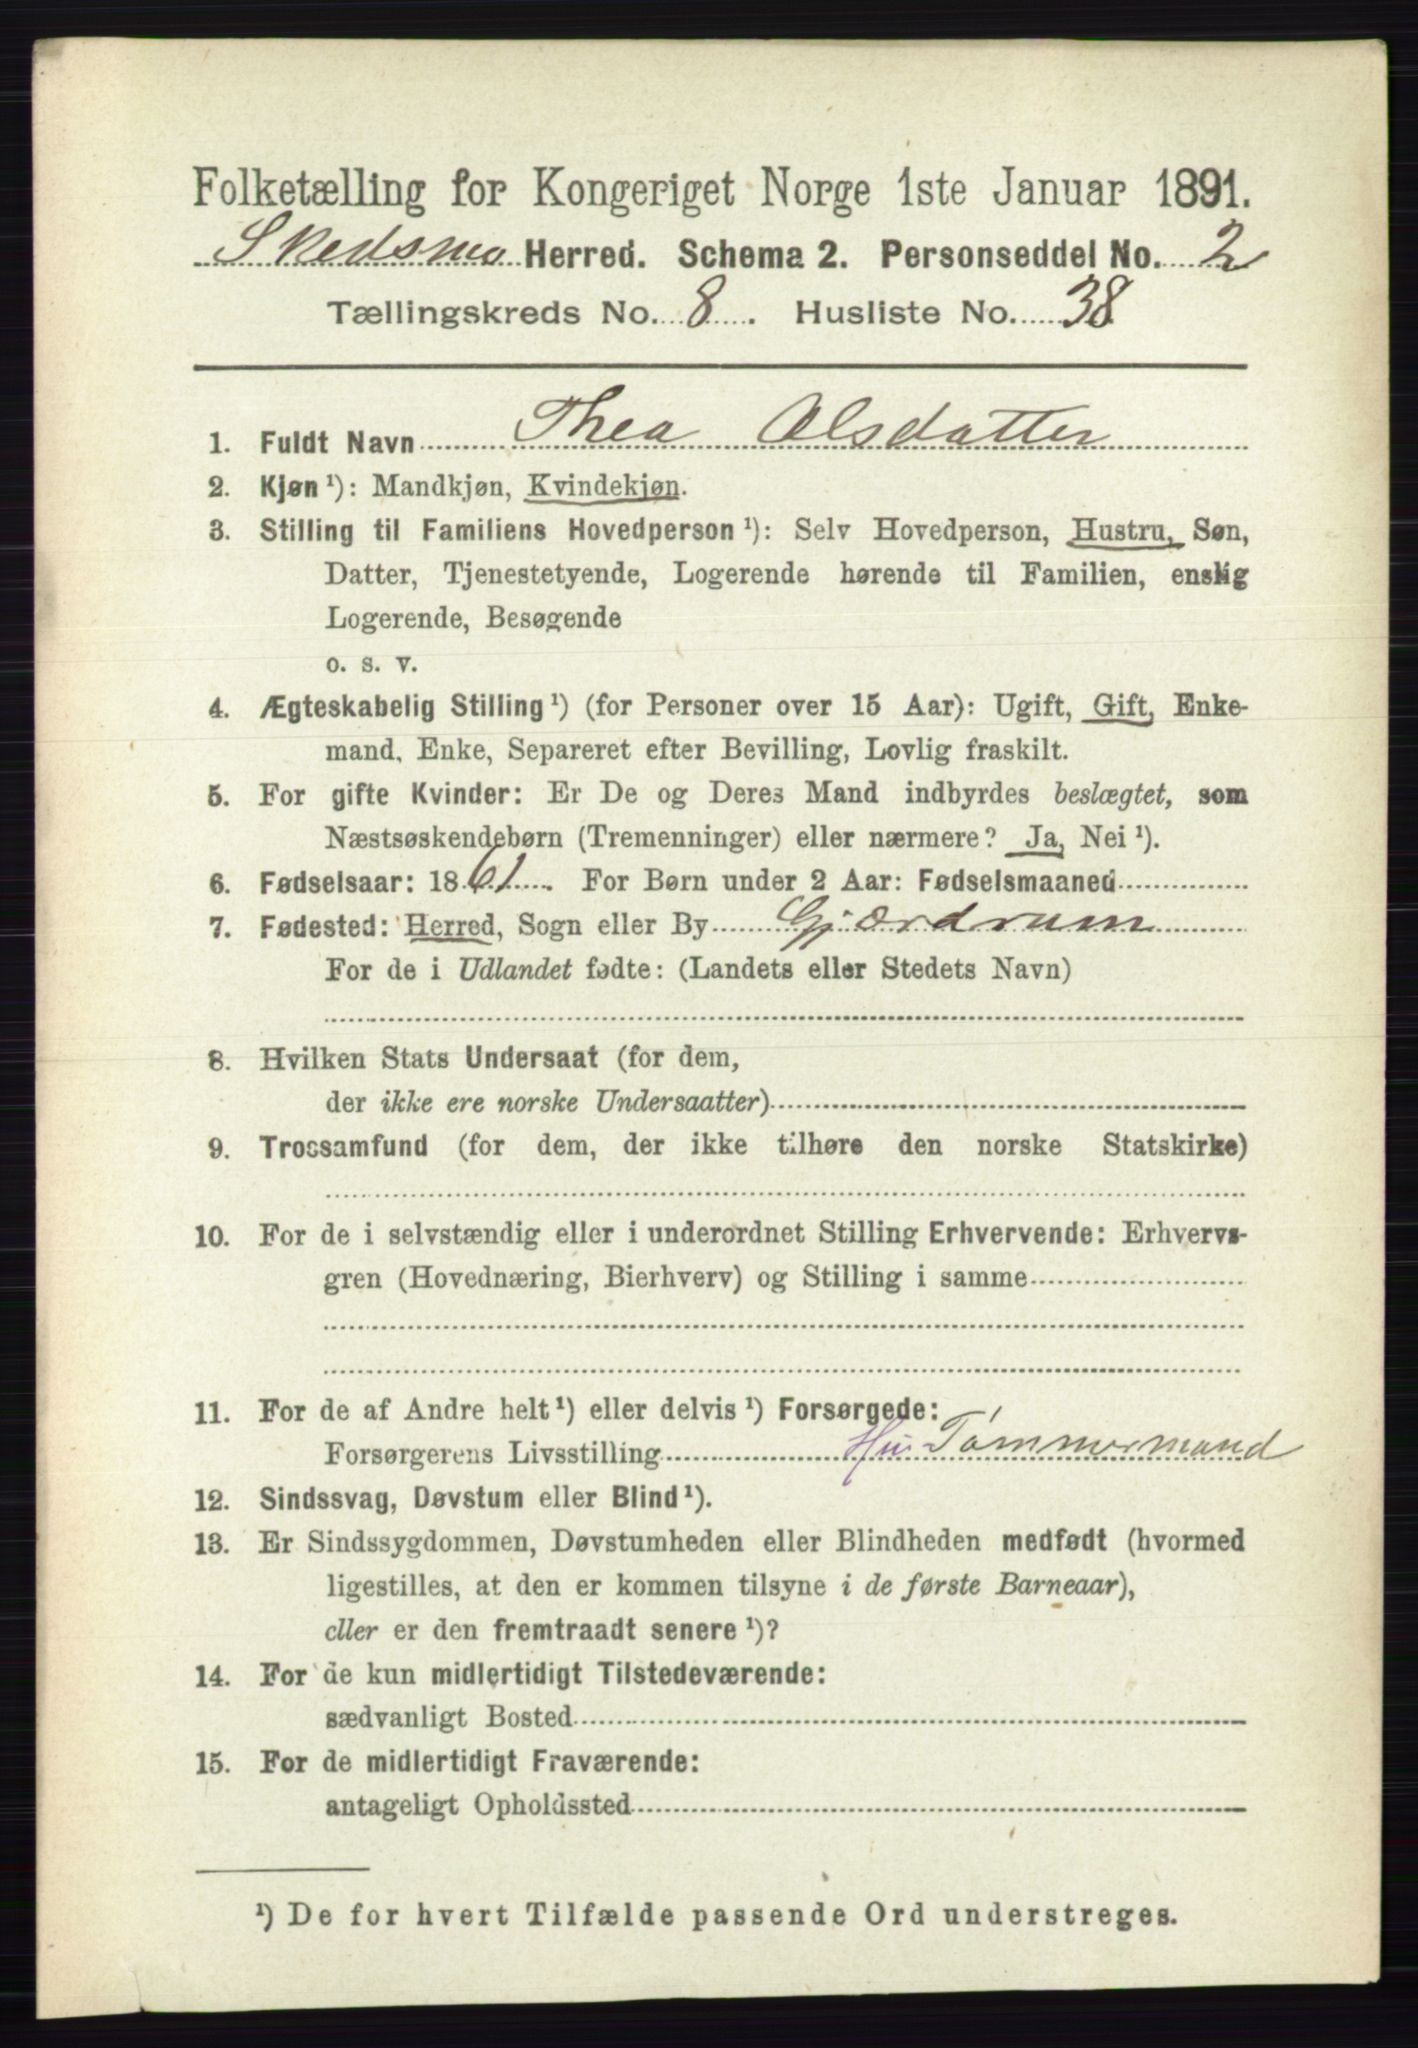 Folketælling for Kongeriget Norge 1ste Januar 1891.
Skedsmo Herred. Schema 2. Personseddel No. 2
Tællingskreds No. 8. Husliste No. 38
1. Fuldt Navn Thea Olsdatter
2. Kjøn ¹): Mandkjøn, Kvindekjøn.
3. Stilling til Familiens Hovedperson ¹): Selv Hovedperson, Hustru, Søn,
Datter, Tjenestetyende, Logerende hørende til Familien, enslig
Logerende, Besøgende
o. s. v.
4. Ægteskabelig Stilling ¹) (for Personer over 15 Aar): Ugift, Gift, Enke-
mand, Enke, Separeret efter Bevilling, Lovlig fraskilt.
5. For gifte Kvinder: Er De og Deres Mand indbyrdes beslægtet, som
Næstsøskendebørn (Tremenninger) eller nærmere? Ja, Nei ¹).
6. Fødselsaar: 1861. For Børn under 2 Aar: Fødselsmaaned
7. Fødested: Herred, Sogn eller By Gjærdrum
For de i Udlandet fødte: (Landets eller Stedets Navn)
8. Hvilken Stats Undersaat (for dem,
der ikke ere norske Undersaatter)
9. Trossamfund (for dem, der ikke tilhøre den norske Statskirke)
10. For de i selvstændig eller i underordnet Stilling Erhvervende: Erhvervs-
gren (Hovednæring, Bierhverv) og Stilling i samme
11. For de af Andre helt ¹) eller delvis ¹) Forsørgede:
Forsørgerens Livsstilling Hus Tømmermand
12. Sindssvag, Døvstum eller Blind ¹).
13. Er Sindssygdommen, Døvstumheden eller Blindheden medfødt (hvormed
ligestilles, at den er kommen tilsyne i de første Barneaar),
eller er den fremtraadt senere ¹)?
14. For de kun midlertidigt Tilstedeværende:
sædvanligt Bosted
15. For de midlertidigt Fraværende:
antageligt Opholdssted
¹) De for hvert Tilfælde passende Ord understreges.